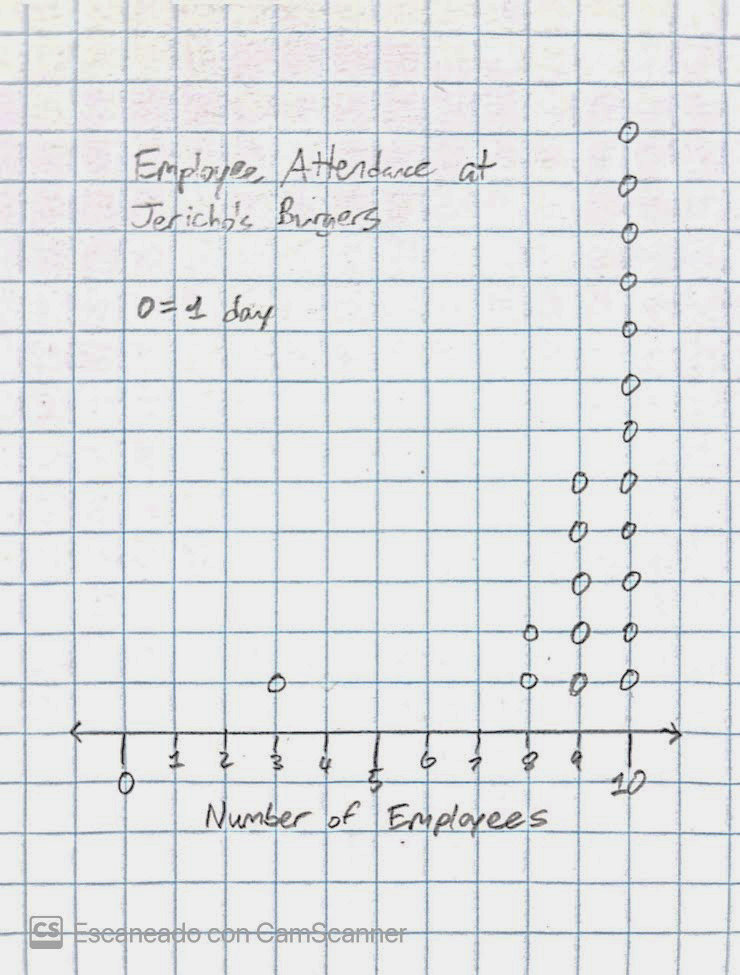 Employee Attendance at
Jericho's Burgers
0 = 1 day
0 1 2 3 4 5 6 7 8 9 10
Number of Employees
CS Escaneado con CamScanner